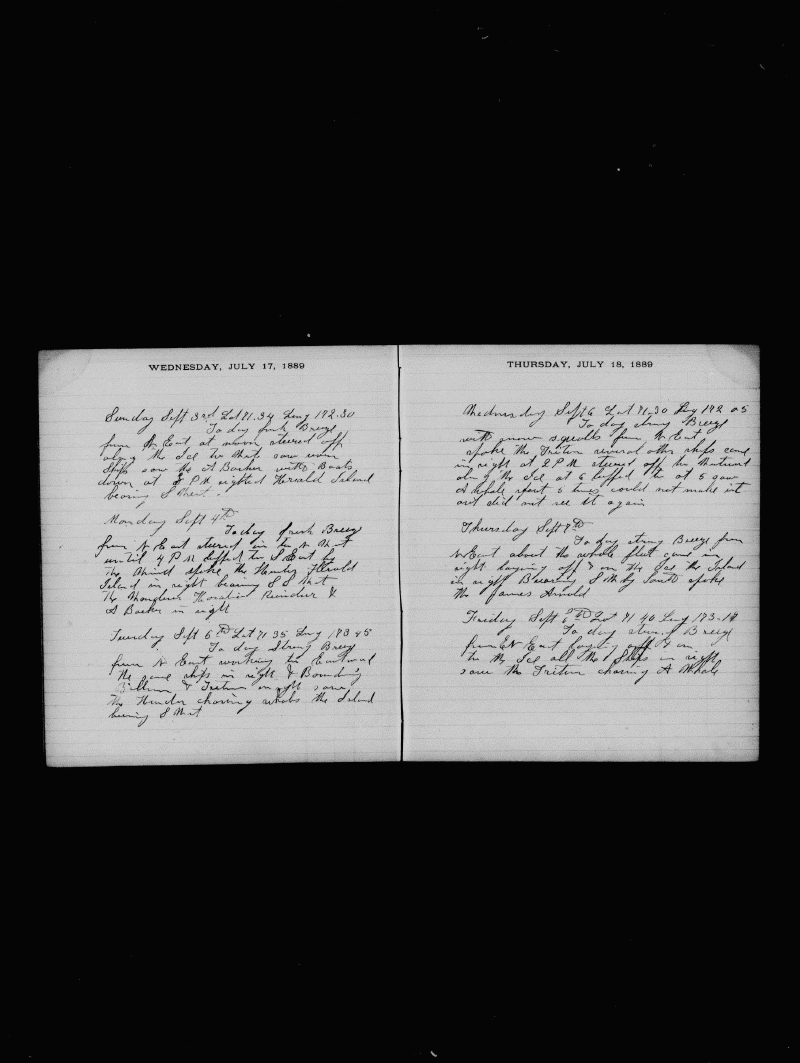 WEDNESDAY, JULY 17, 1889
Sunday Sept 3rd Lat 71.34 Long 172.30
To day fresh Breeze
from N East at noon steered off
along the Ice to West saw seven
Ships saw the A Barker with Boats
down at 8 P M sighted Herald Island
bearing S West.
Monday Sept 4th
To day fresh Breeze
from N East steered in to N West
until 4 P M luffed to S East by
the Wind spoke the Hunter Herald
Island in sight bearing S S West
The Horatio Reindeer &
A Barker in sight
Tuesday Sept 5th Lat 71 35 Long 173 45
To day Strong Breeze
from N East working to Eastward
the same ships in sight & Bounding
Billow & Triton in sight saw
the Hunter chasing whales the Island
bearing S West
THURSDAY, JULY 18, 1889
Wednesday Sept 6 Lat 71.30 Long 172 05
To day strong Breeze
with snow squalls from N East
spoke the Triton several other ships came
in sight at 2 P M steered off to Westward
along the Ice at 4 luffed to at 5 saw
A whale spout 3 times could not make it
out did not see it again
Thursday Sept 7th
To day strong Breeze from
N East about the whole fleet came in
sight laying off & on the Ice the Island
in sight Bearing S W by South spoke
the James Arnold
Friday Sept 8th Lat 71 40 Long 173.14
To day strong Breeze
from N East laying off & on
to the Ice all the Ships in sight
saw the Triton chasing A Whale